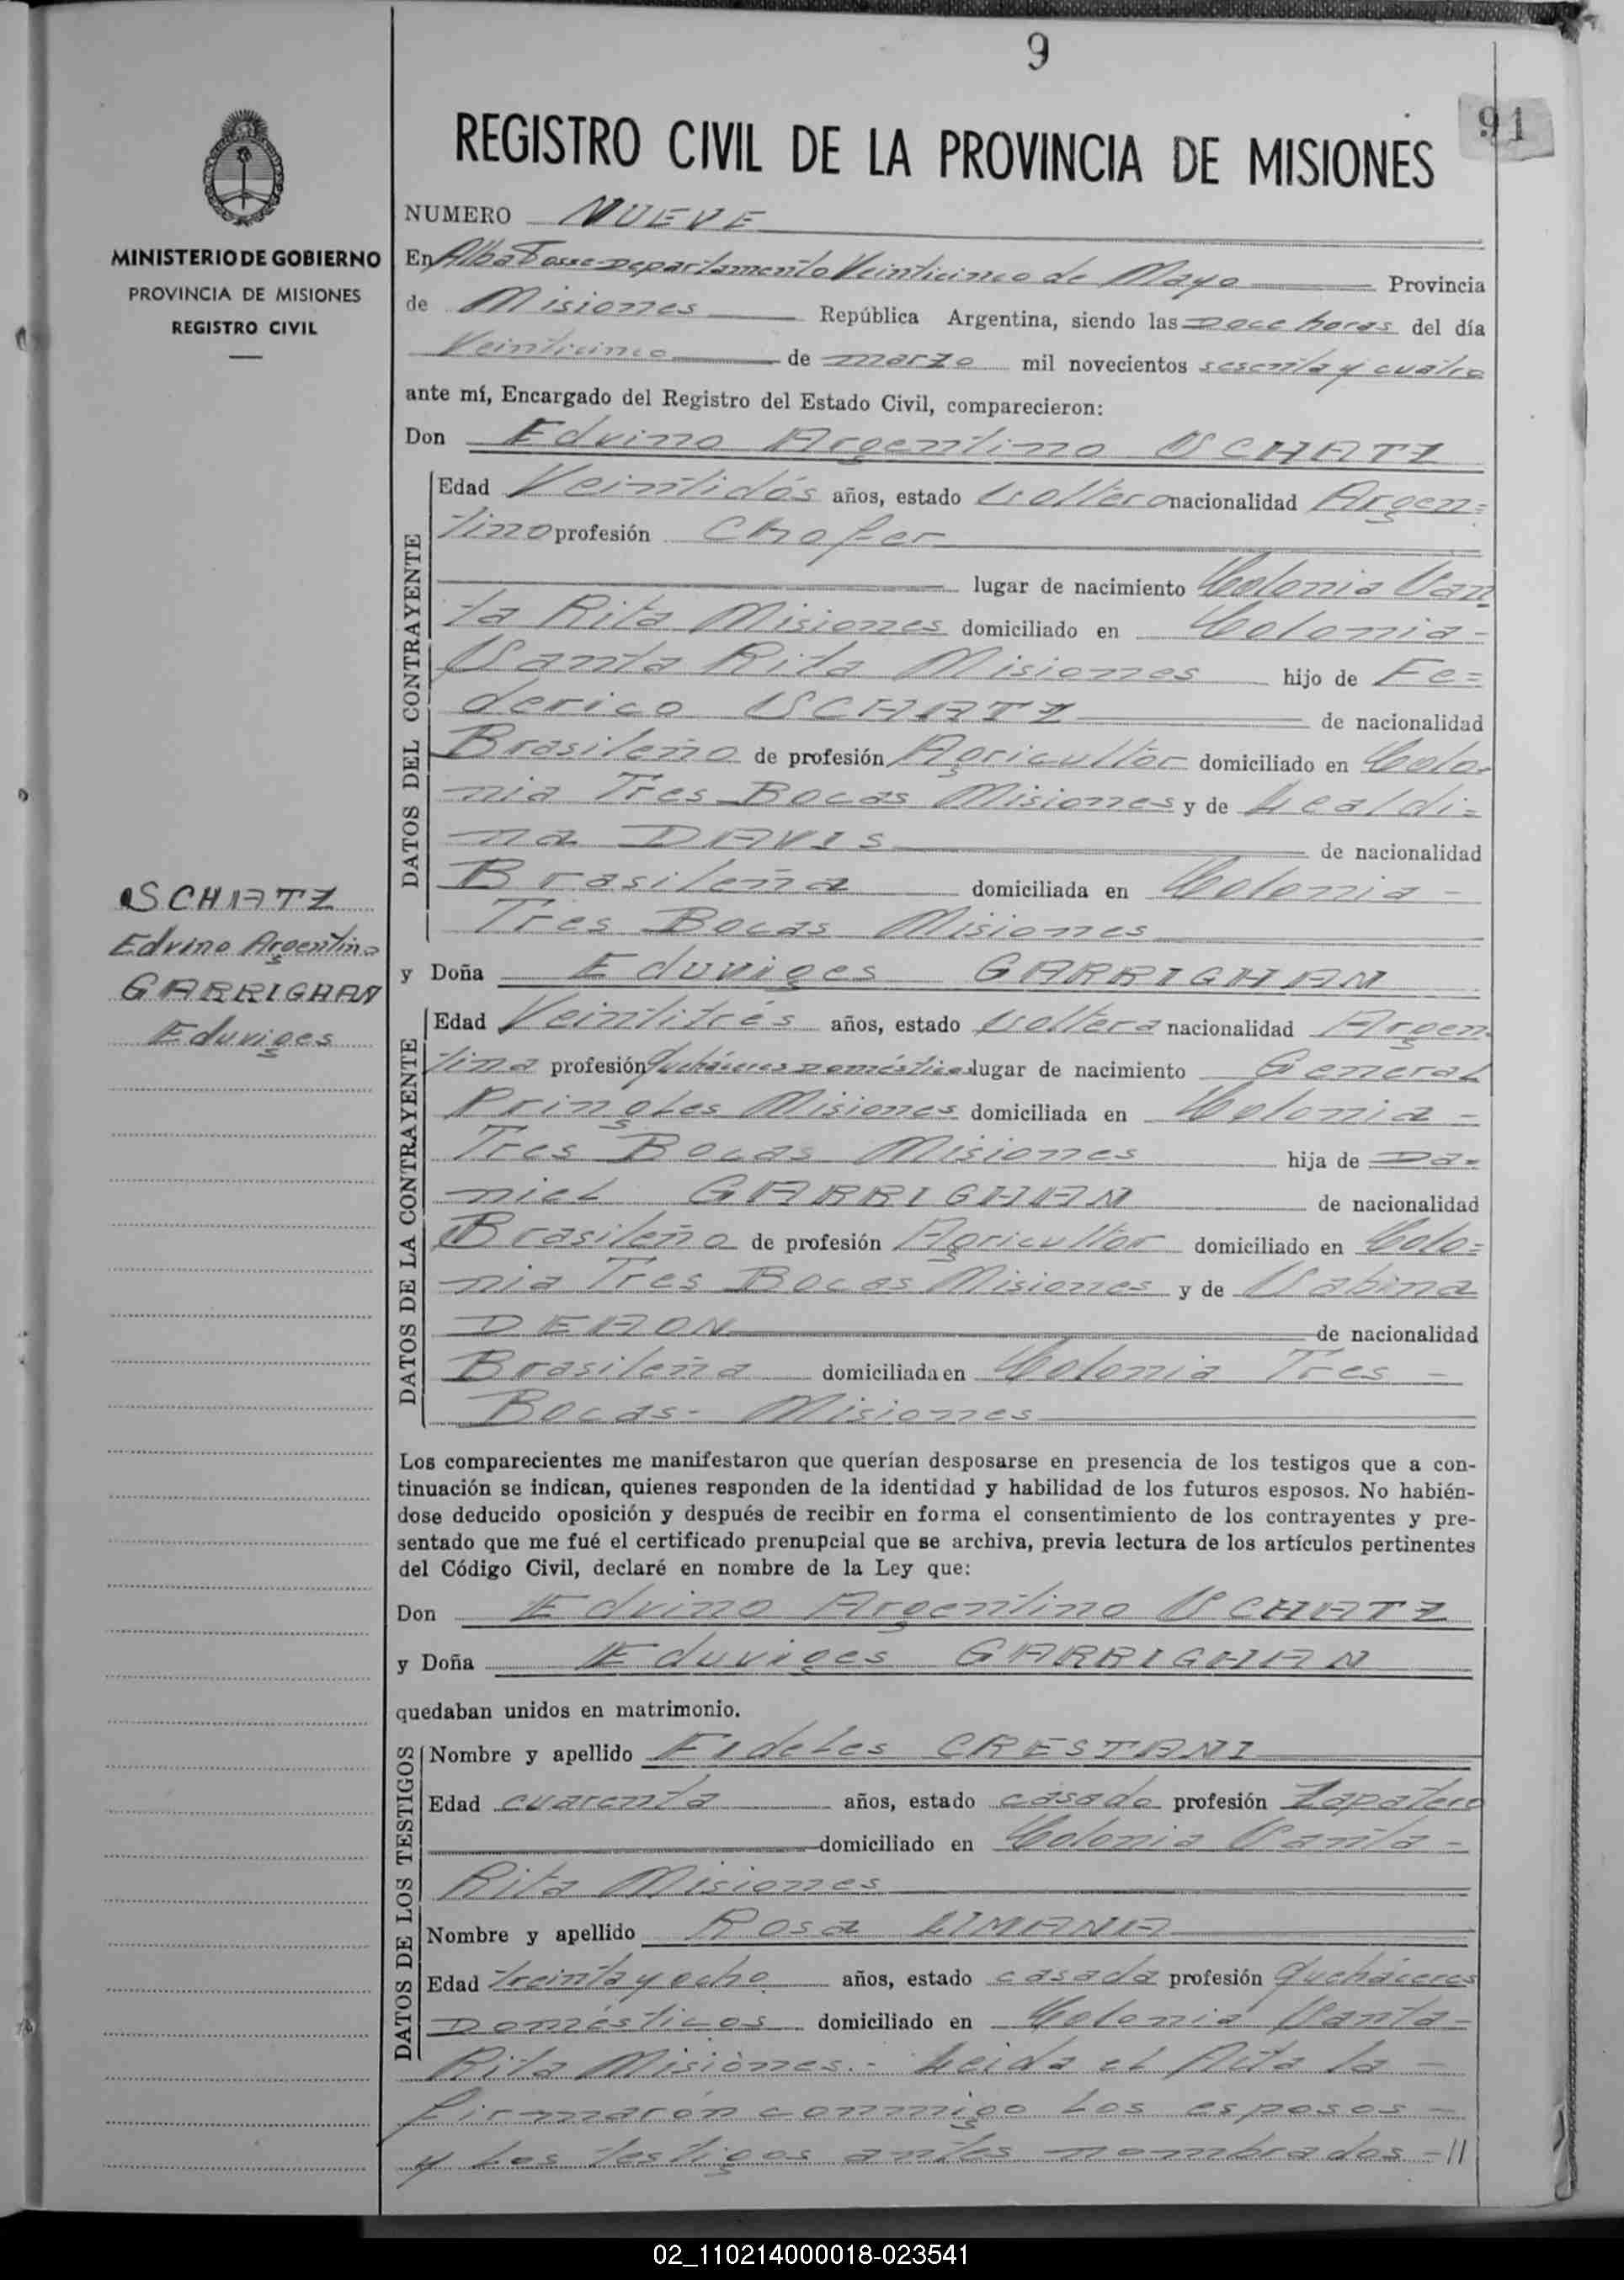 9
91
REGISTRO CIVIL DE LA PROVINCIA DE MISIONES
MINISTERIO DE GOBIERNO
PROVINCIA DE MISIONES
REGISTRO CIVIL
SCHATZ
Edvino Argentino
GARRIGHAN
Eduviges
NUMERO NUEVE
En Alba Posse Departamento Veinticinco de Mayo Provincia
de Misiones República Argentina, siendo las Doce horas del día
Veinticinco de marzo mil novecientos sesenta y cuatro
ante mí, Encargado del Registro del Estado Civil, comparecieron:
Don Edvino Argentino SCHATZ
DATOS DEL CONTRAYENTE
Edad Veintidós años, estado soltero nacionalidad Argen=
tino profesión Chofer
lugar de nacimiento Colonia San
ta Rita Misiones domiciliado en Colonia -
Santa Rita Misiones hijo de Fe=
derico SCHATZ de nacionalidad
Brasileño de profesión Agricultor domiciliado en Colo-
nia Tres Bocas Misiones y de Lealdi=
na DAVIS de nacionalidad
Brasileña domiciliada en Colonia -
Tres Bocas Misiones
y Doña Eduviges GARRIGHAN
DATOS DE LA CONTRAYENTE
Edad Veintitrés años, estado soltera nacionalidad Argen-
tina profesión Quehaceres Domésticos lugar de nacimiento General
Pringles Misiones domiciliada en Colonia -
Tres Bocas Misiones hija de Da-
niel GARRIGHAN de nacionalidad
Brasileño de profesión Agricultor domiciliado en Colo=
nia Tres Bocas Misiones y de Sabina
DEAON de nacionalidad
Brasileña domiciliada en Colonia Tres -
Bocas - Misiones
Los comparecientes me manifestaron que querían desposarse en presencia de los testigos que a con-
tinuación se indican, quienes responden de la identidad y habilidad de los futuros esposos. No habién-
dose deducido oposición y después de recibir en forma el consentimiento de los contrayentes y pre-
sentado que me fué el certificado prenupcial que se archiva, previa lectura de los artículos pertinentes
del Código Civil, declaré en nombre de la Ley que:
Don Edvino Argentino SCHATZ
y Doña Eduviges GARRIGHAN
quedaban unidos en matrimonio.
DATOS DE LOS TESTIGOS
Nombre y apellido Fideles CRESTANI
Edad cuarenta años, estado casado profesión Zapatero
domiciliado en Colonia Santa -
Rita Misiones
Nombre y apellido Rosa LIMANA
Edad treinta y ocho años, estado casada profesión Quehaceres
Domésticos domiciliado en Colonia Santa -
Rita Misiones.- Leida el Acta la -
firmaron conmigo los esposos -
y los testigos antes nombrados -//
02_110214000018-023541